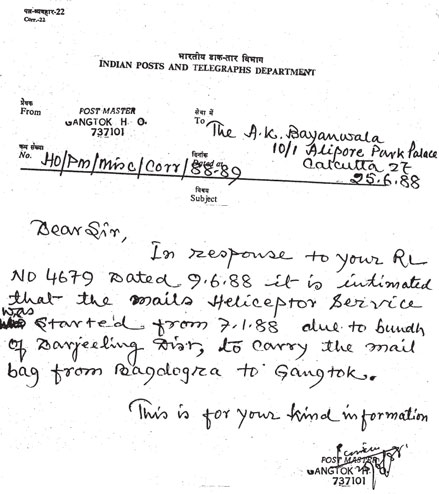 पत्र-व्यवहार-22
Corr.-22
भारतीय डाक-तार विभाग
INDIAN POSTS AND TELEGRAPHS DEPARTMENT
प्रेषक
From
POST MASTER
GANGTOK H O.
737101
सेवा में
To
The A.K. Bayanwala
10/1 Alipore Park Palace
Calcutta 27
क्रम संख्या
No. HO/PM/Misc/Corr/88-89
दिनांक
Dated at
25.6.88
विषय
Subject
Dear Sir,
In response to your RL
NO 4679 Dated 9.6.88 it is intimated
that the mails Heliceptor Service
was
started from 7.1.88 due to bundh
of Darjeeling Dist, to carry the mail
bag from Bagdogra to Gangtok.
This is for your kind information
POST MASTER
GANGTOK H. O.
737101